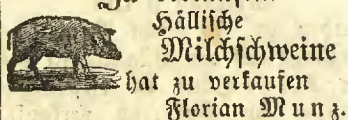 Hällische
Milchschweine
hat zu verkaufen
Florian Munz.